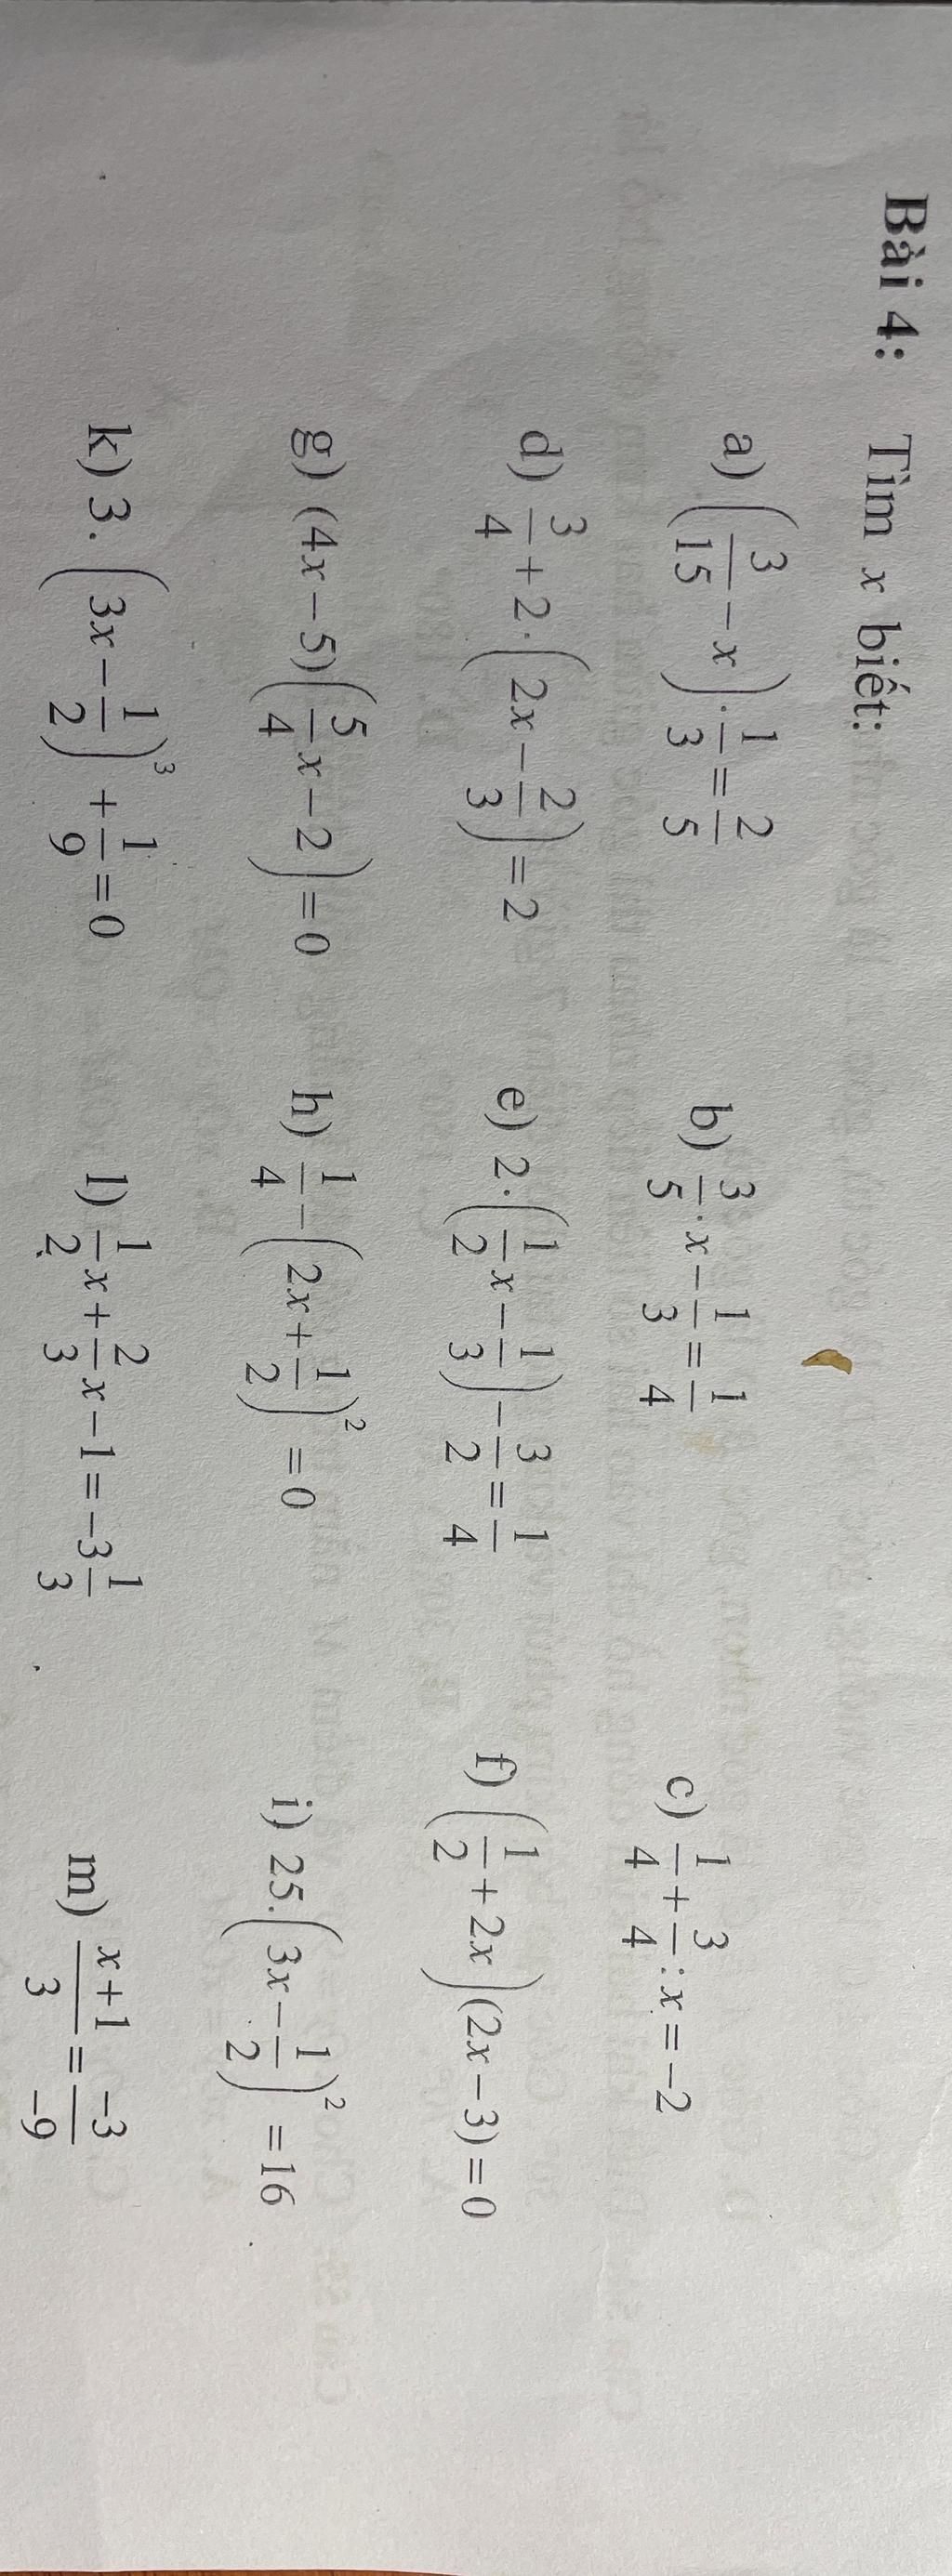 Bài 4: Tìm x biết:
a) (3/15 − x) · 1/3 = 2/5 b) 3/5 · x − 1/3 = 1/4 c) 1/4 + 3/4 : x = −2
d) 3/4 + 2 · (2x − 2/3) = 2 e) 2 · (1/2 x − 1/3) − 3/2 = 1/4 f) (1/2 + 2x)(2x − 3) = 0
g) (4x − 5)(5/4 x − 2) = 0 h) 1/4 − (2x + 1/2)² = 0 i) 25.(3x − 1/2)² = 16
k) 3. (3x − 1/2)³ + 1/9 = 0 l) 1/2 x + 2/3 x − 1 = −3 1/3 m) (x + 1)/3 = −3/−9